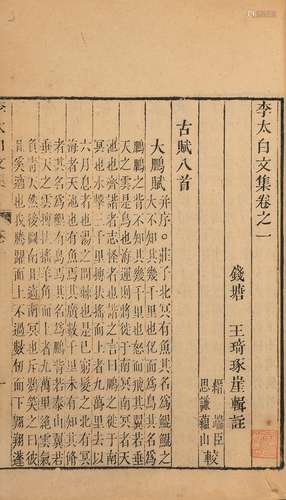 李太白文集卷之一
錢塘 王琦琢崖輯註
縉端臣
思謙蘊山 較
古賦八首
大鵬賦 并序○莊子北冥有魚其名爲鯤鯤之
大不知其幾千里也化而爲鳥其名爲
鵬鵬之背不知其幾千里也怒而飛其翼若垂
天之雲是鳥也海運則將徙於南冥南冥者天
池也齊諧者志怪者也諧之言曰鵬之徙於南
冥也水擊三千里摶扶搖而上者九萬里去以
六月息者也湯之問棘也是已窮髮之北有冥
海者天池也有魚焉其廣數千里未有知其修
者其名爲鯤有鳥焉其名爲鵬背若泰山翼若
垂天之雲摶扶搖羊角而上者九萬里絕雲氣
負青天然後圖南且適南冥也斥鷃笑之曰彼
且奚適也我騰躍而上不過數仞而下翱翔蓬
李太白文集